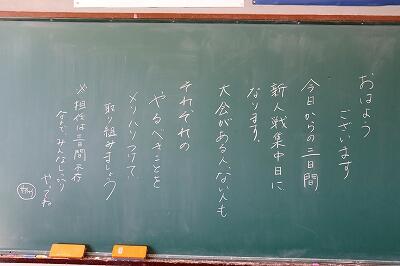 おはよう
ございます
今日からの三日間
新人戦集中日に
なります。
大会がある人、ない人も
それぞれの
やるべきことを
メリハリつけて
取り組みましょう
※担任は三日間不在
なので、みんなしっかり
やってね